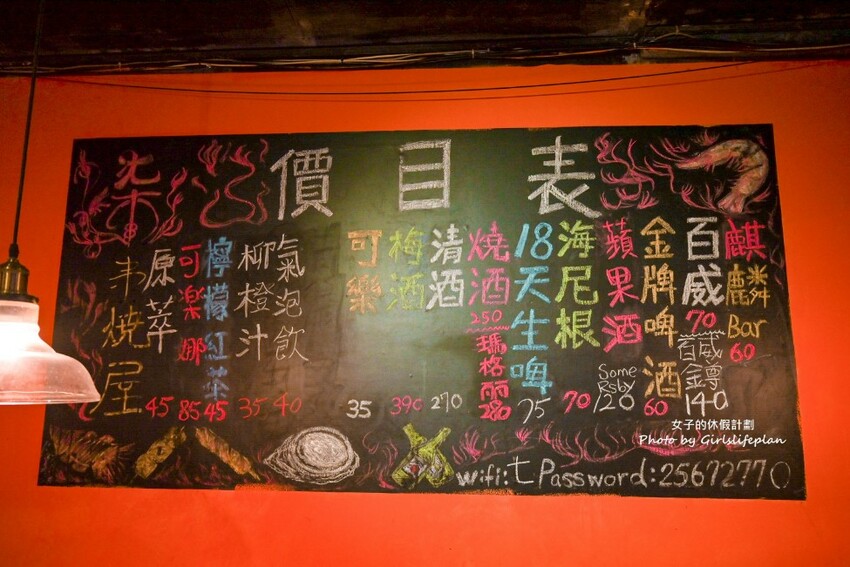 價目表
麒麟Bar
60
百威
70
百威鐏
140
金牌啤酒
60
蘋果酒
Some
Rsby
120
海尼根
70
18天生啤
75
燒酒
250
瑪格麗
280
清酒
270
梅酒
390
可樂
35
氣泡飲
40
柳橙汁
35
檸檬紅茶
45
可樂娜
85
原萃
45
串燒屋
wifi:t Password:25672770
女子的休假計劃
Photo by Girlslifeplan